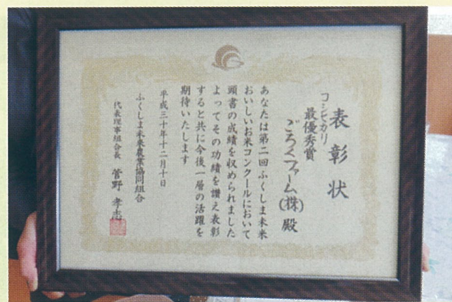 表彰状
コシヒカリ
最優秀賞
ごろくファーム(株)殿
あなたは第二回ふくしま未来
おいしいお米コンクールにおいて
頭書の成績を収められました
よってその功績を讃え表彰
すると共に今後一層の活躍を
期待いたします
平成三十年十二月十日
ふくしま未来農業協同組合
代表理事組合長 菅野孝志